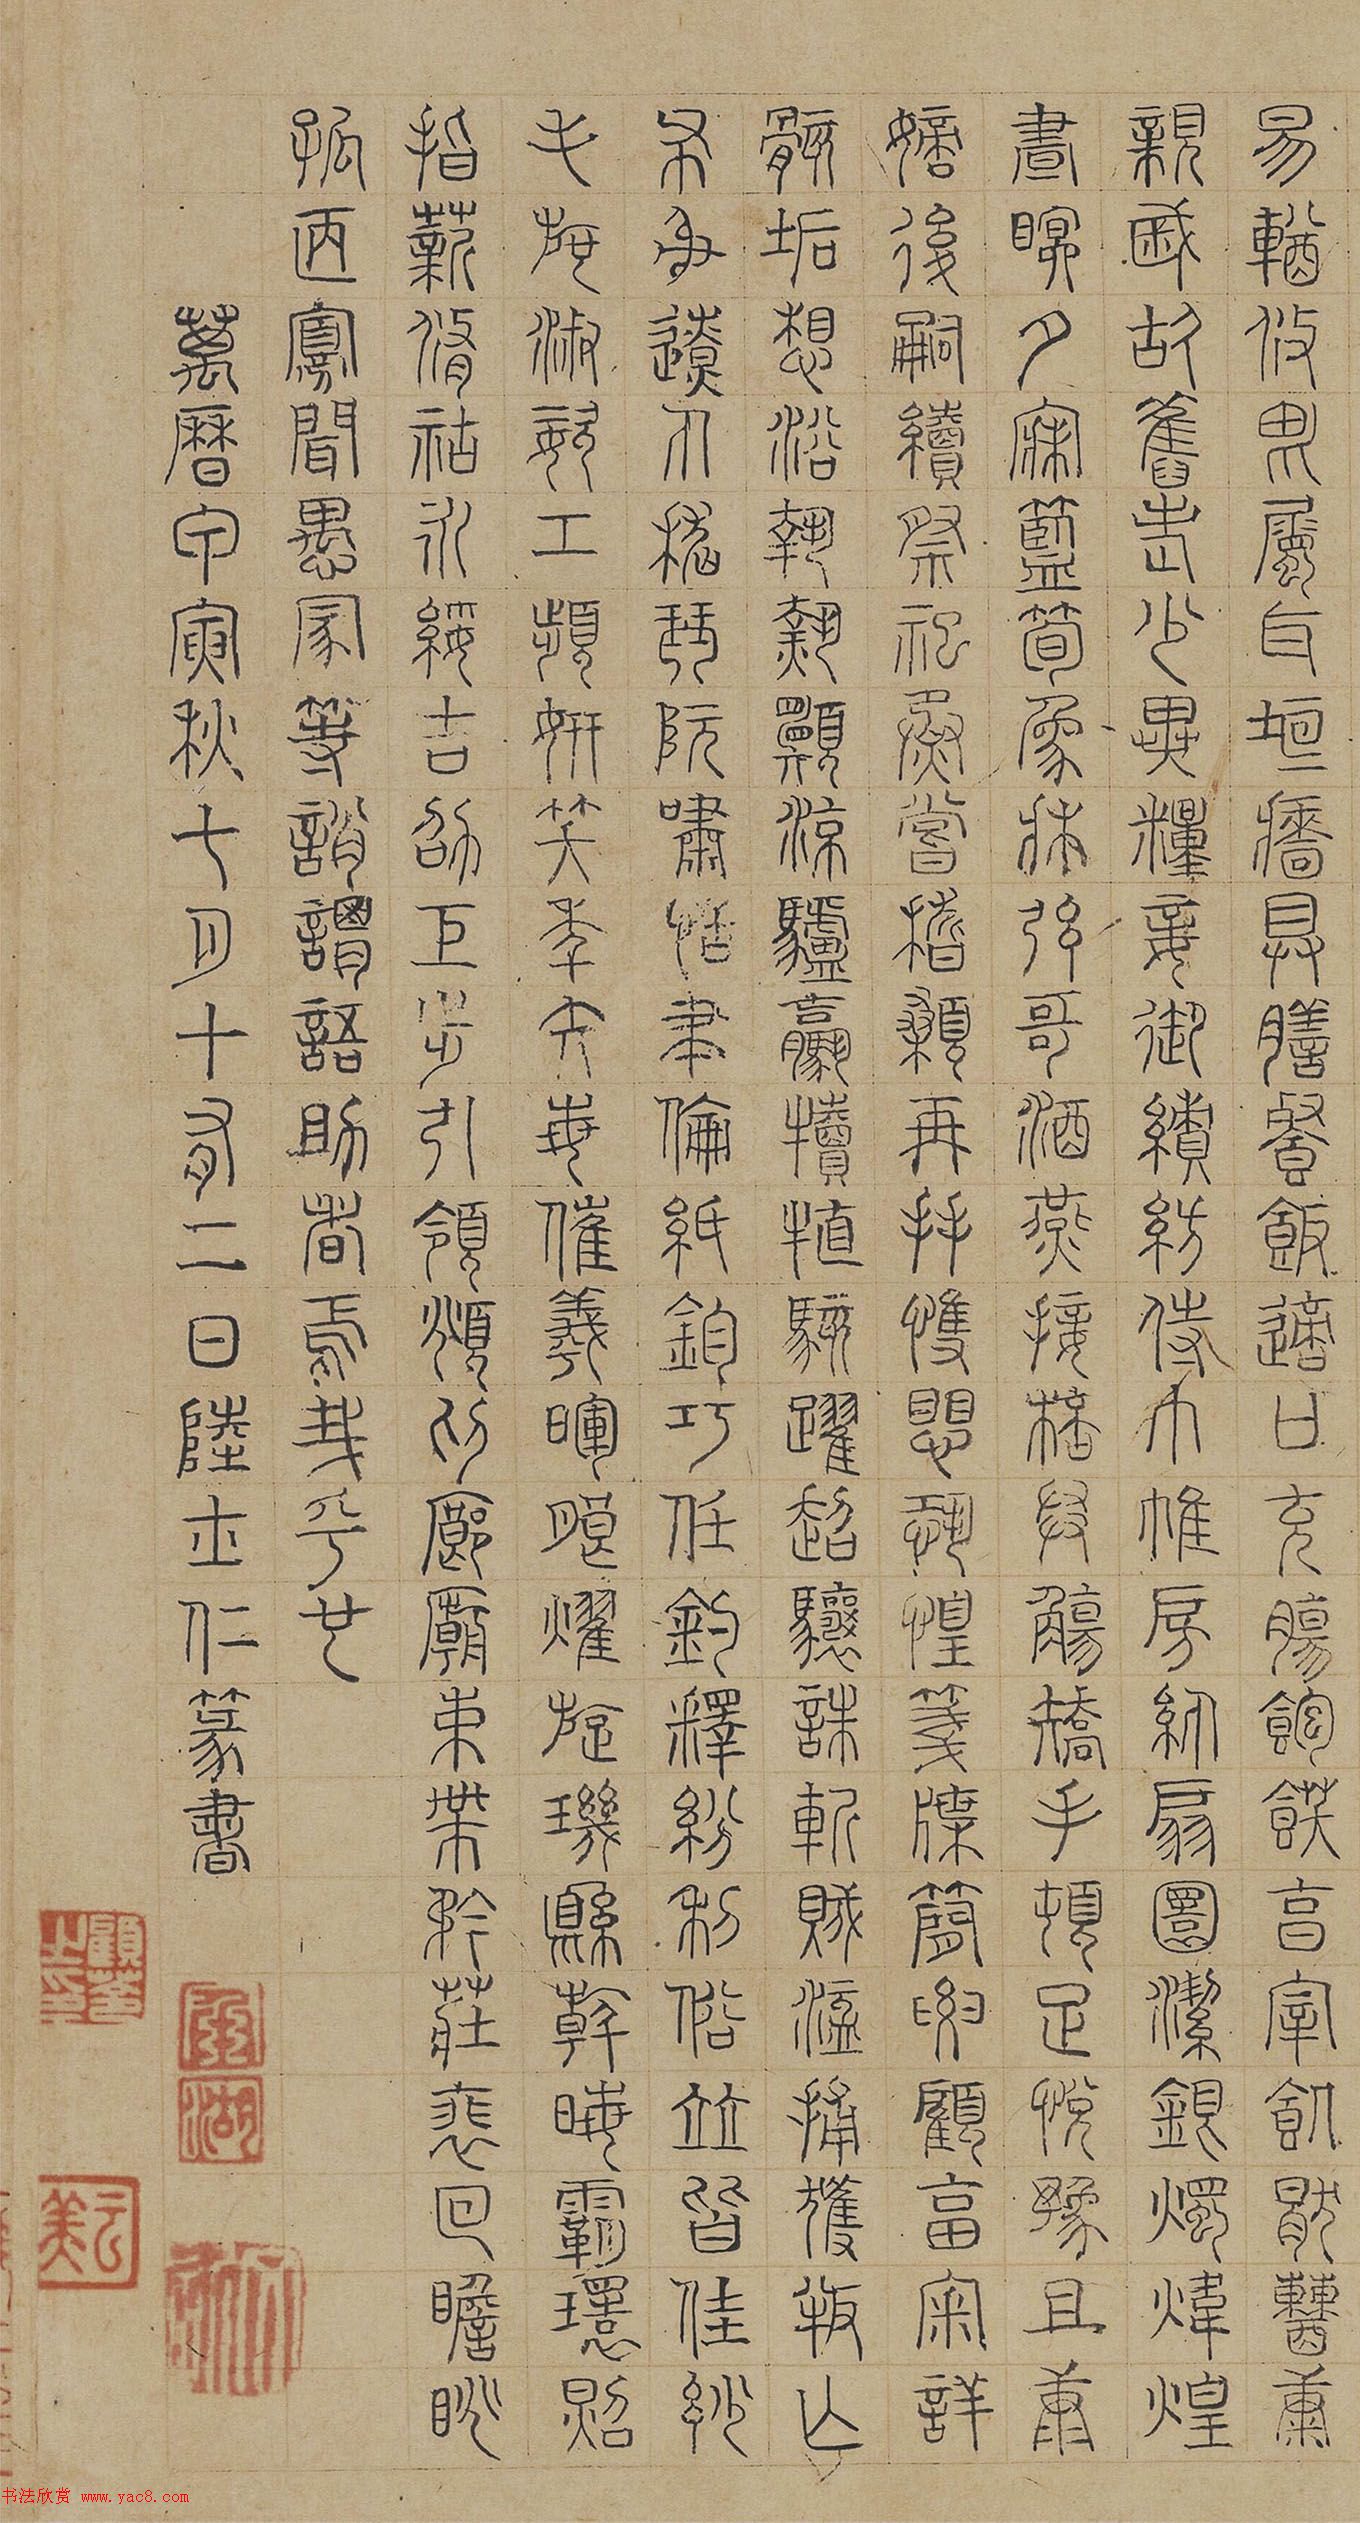 易輶攸畏屬耳垣牆具膳餐飯適口充腸飽飫享宰飢厭糟糠
親戚故舊老少異糧妾御績紡侍巾帷房紈扇圓潔銀燭煒煌
晝瞑夕寐藍筍象牀弦歌酒燕接杯舉觴矯手頓足悅豫且康
嫡後嗣續祭祀烝嘗稽顙再拜悚懼恐惶箋牒簡要顧畣審詳
骸垢想浴執熱願涼驢驘犢特駭躍超驤誅斬賊盜捕獲叛亡
布射遼丸嵇琴阮嘯恬筆倫紙鈞巧任釣釋紛利俗並皆佳妙
毛施淑姿工顰妍笑年矢每催羲暉朗耀旋璣縣斡晦霸環照
指薪修祜永綏吉劭矩步引領頫仰廊廟束帶矜莊裴回瞻眺
孤陋寡聞愚蒙等誚謂語助者焉哉乎也
萬曆甲寅秋七月十有二日陸士仁篆書
书法欣赏 www.yac8.com